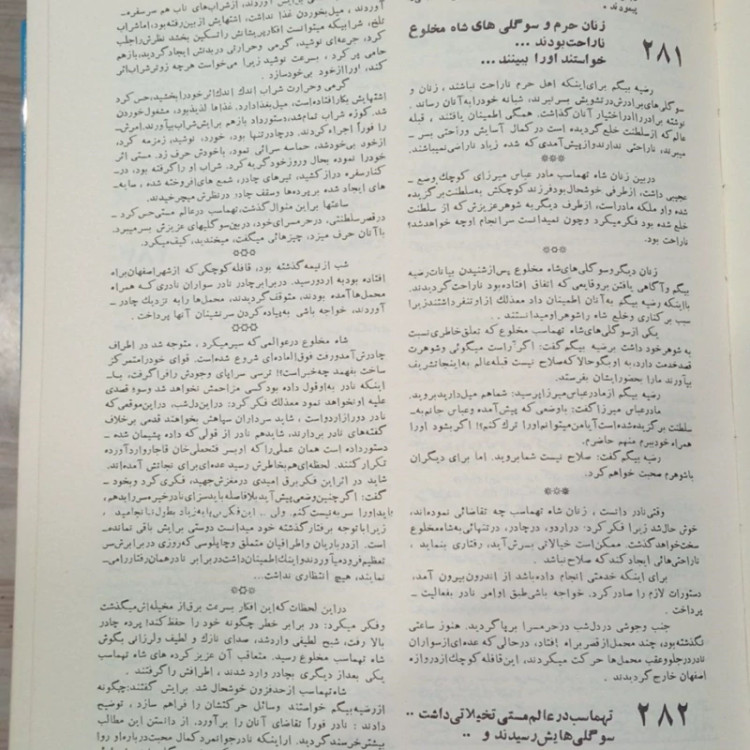 پیمودند.
۲۸۱
زنان حرم و سوگلی های شاه مخلوع
ناراحت بودند ...
خواستند اورا ببینند ...
رضیه بیگم برای اینکه اهل حرم ناراحت نباشند ، زنان و
سوگلی‌های برادرش درتشویش بسرنبرند، شبانه خودرا به آنان رساند .
نوشته برادررا دراختیار آنان گذاشت. همگی اطمینان یافتند ، قبله
عالم که ازسلطنت خلع گردیده است درکمال آسایش وراحتی بسر ـ
میبرند، ناراحتی ندارند وازپیش‌آمدی که شده زیاد ناراضی نمیباشند.
دربین زنان شاه تهماسب مادر عباس میرزای کوچک وضع ـ
عجیبی داشت، ازطرفی خوشحال بود فرزند کوچکش به سلطنت برگزیده
شده واو ملکه مادراست، ازطرف دیگر به شوهرعزیزش که از سلطنت
خلع شده بود فکرمیکرد وچون نمیدانست سرانجام اوچه خواهدشد؛
ناراحت بود.
زنان دیگر و سوگلی‌های شاه مخلوع پس ازشنیدن بیانات رضیه
بیگم وآگاهی یافتن بروقایعی که اتفاق افتاده بود ناراحت گردیدند.
بااینکه رضیه بیگم به آنان اطمینان داد معذلک ازاوتنفر داشتند زیرا
سبب برکناری وخلع شاه راشوهر اومیدانستند .
یکی ازسوگلی‌های شاه تهماسب مخلوع که تعلق خاطری نسبت
به شوهرخود داشت برضیه بیگم گفت: اگرراست میگوئی وشوهرت
قصدخدمت دارد، به اوبگوحالا که صلاح نیست قبله عالم به اینجاتشریف
بیاورند مارا بحضور ایشان بفرستد.
رضیه بیگم ازمادر عباس میرزا پرسید: شما هم میل دارید بروید.
مادر عباس میرزا گفت: باوضعی که پیش‌آمده وعباس جانم به ـ
سلطنت برگزیده شده است آیا من میتوانم اورا ترک کنم؟! اگر بشود اورا
همراه خود ببرم منهم حاضرم.
رضیه بیگم گفت: صلاح نیست شما بروید. اما برای دیگران
باشوهرم صحبت خواهم کرد.
وقتی نادر دانست ، زنان شاه تهماسب چه تقاضائی نموده‌اند،
خوش حال شد زیرا فکر کرد: در اردو، درچادر، درتنهائی به شاه مخلوع
سخت خواهد گذشت. ممکن است خیالاتی بسرش آید، رفتاری بنماید ،
ناراحتی‌هائی ایجاد کند که صلاح نباشد .
برای اینکه خدمتی انجام داده باشد از اندرون بیرون آمد،
دستورات لازم را صادر کرد. خواجه باشی طبق اوامر نادر بفعالیت ـ
پرداخت .
جنب وجوشی دردل شب درحمسرا برپا گردید. هنوز ساعتی
نگذشته بود، چند محمل ازقصر براه افتاد، درحالی که عده‌ای ازسواران
نادر درجلو وعقب محمل‌ها حرکت میکردند، این قافله کوچک از دروازه
اصفهان خارج گردیدند .
۲۸۲
تهماسب در عالم مستی تخیلاتی داشت ..
سوگلی هایش رسیدند و ..
آوردند ، میل بخوردن غذا نداشت، اشتهایش ازبین رفته بود، اما شراب
تلخ، شرابی که میتوانست افکار پریشانش راتسکین بخشد نظرش راجلب
کرد، جرعه‌ای نوشید، گرمی وحرارتی دربدنش ایجاد گردید، بازهم
جامی پر کرد ، بسرعت نوشید زیرا می‌خواست هرچه زودتر شراب اثر
کند، اورا ازخود بی‌خود سازد .
گرمی وحرارت شراب اندک اندک اثرخودرا بخشید، حس کرد
اشتهایش بکار افتاده است، میل بغذا دارد. غذاها لذیذ بود، مشغول خوردن
شد. کوزه شراب تمام شد، دستور داد بازهم برایش شراب بیآورند. امرش ـ
را فوراً اجراء کردند. درچادر تنها بود، خورد، نوشید، زمزمه کرد،
ازخود بی‌خود شد، حماسه سرائی نمود، باخودش حرف زد. مستی اثر
خودرا نموده بحال وروز خود گریه کرد. شراب او را گرفته بود، در ـ
کنار سفره دراز کشید، تیرهای چادر، شمع های افروخته شده ، سایه ـ
های ایجاد شده بر پرده‌ها وسقف چادر درنظرش میچرخیدند.
ساعتها براین منوال گذشت، تهماسب درعالم مستی حس کرد ـ
درقصر سلطنتی، درحرمسرای خود، دربین سوگلیهای عزیزش بسر میبرد.
باآنان حرف میزد، چیزهائی میگفت، میخندید، کیف میکرد.
شب ازنیمه گذشته بود، قافله کوچکی که ازشهر اصفهان براه
افتاده بود به اردو رسید. دربرابر چادر نادر سواران نادری که همراه
محمل‌ها آمده بودند، متوقف گردیدند، محمل‌ها را به نزدیک چادر ـ
آوردند، خواجه باشی به پیاده کردن سرنشینان آنها پرداخت .
شاه مخلوع درعالمی که سیر میکرد ، متوجه شد در اطراف
چادرش آمد ورفت فوق‌العاده‌ای شروع شده است. قوای خودرا متمرکز
ساخت بفهمد چه خبر است؟! ترسی سراپای وجودش رافرا گرفت، بـا ـ
اینکه نادر به اوقول داده بود کسی مزاحمش نخواهد شد وسوء قصدی
علیه اونخواهد نمود معذلک فکر کرد: دراین دل شب، دراین موقعی که
نادر دور ازاردواست ، شاید سرداران سپاهش بخواهند قدمی برخلاف
گفته‌های نادر بردارند، شاید هم نادر از قولی که داده پشیمان شده ـ
دستور داده است همان عملی را که او بسر فتحعلی‌خان قاجار وارد آورده
تکرار کنند. لحظه‌ای هم بخاطرش رسید عده‌ای برای نجاتش آمده‌اند.
شاید در اثر این فکر برق امیدی درمغزش جهید، فکری کرد وبخود ـ
گفت: اگر چنین وضعی پیش‌آید بلافاصله باید سزای نادر خیره سررا بدهم،
باید او را سر به نیست کنم. ولی ... این فکرش پایه زیاد بطول نیانجامید ،
زیرا باتوجه برفتار گذشته خود میدانست دوستی برایش باقی نمانده ـ
است. ازدرباریان واطرافیان متملق وچاپلوسی که روزی دربرابرش سر
تعظیم فرود میآوردند واینک اطمینان داشت دربرابر نادر همان رفتار رامی ـ
نمایند، هیچ انتظاری نداشت...
دراین لحظات که این افکار بسرعت برق ازمخیله‌اش میگذشت
وفکر میکرد: در برابر خطر چگونه خود را حفظ کند؛ پرده چادر
بالا رفت، شبح لطیفی واردشد، صدای نازک و لطیف ولرزانی بگوش
شاه تهماسب مخلوع رسید. متعاقب آن عزیز کرده های شاه تهماسب
یکی بعداز دیگری بچادر وارد شدند ، اطرافش راگرفتند .
شاه تهماسب ازحدفزون خوشحال شد. برایش گفتند: چگونه
ازرضیه بیگم خواستند وسائل حرکتشان را فراهم سازد ، توضیح
دادند : نادر فوراً تقاضای آنان را برآورد. از دانستن این مطالب
بیشتر خرسند گردید. ازاینکه نادرجوانمرد کمال محبت درباره‌او روا